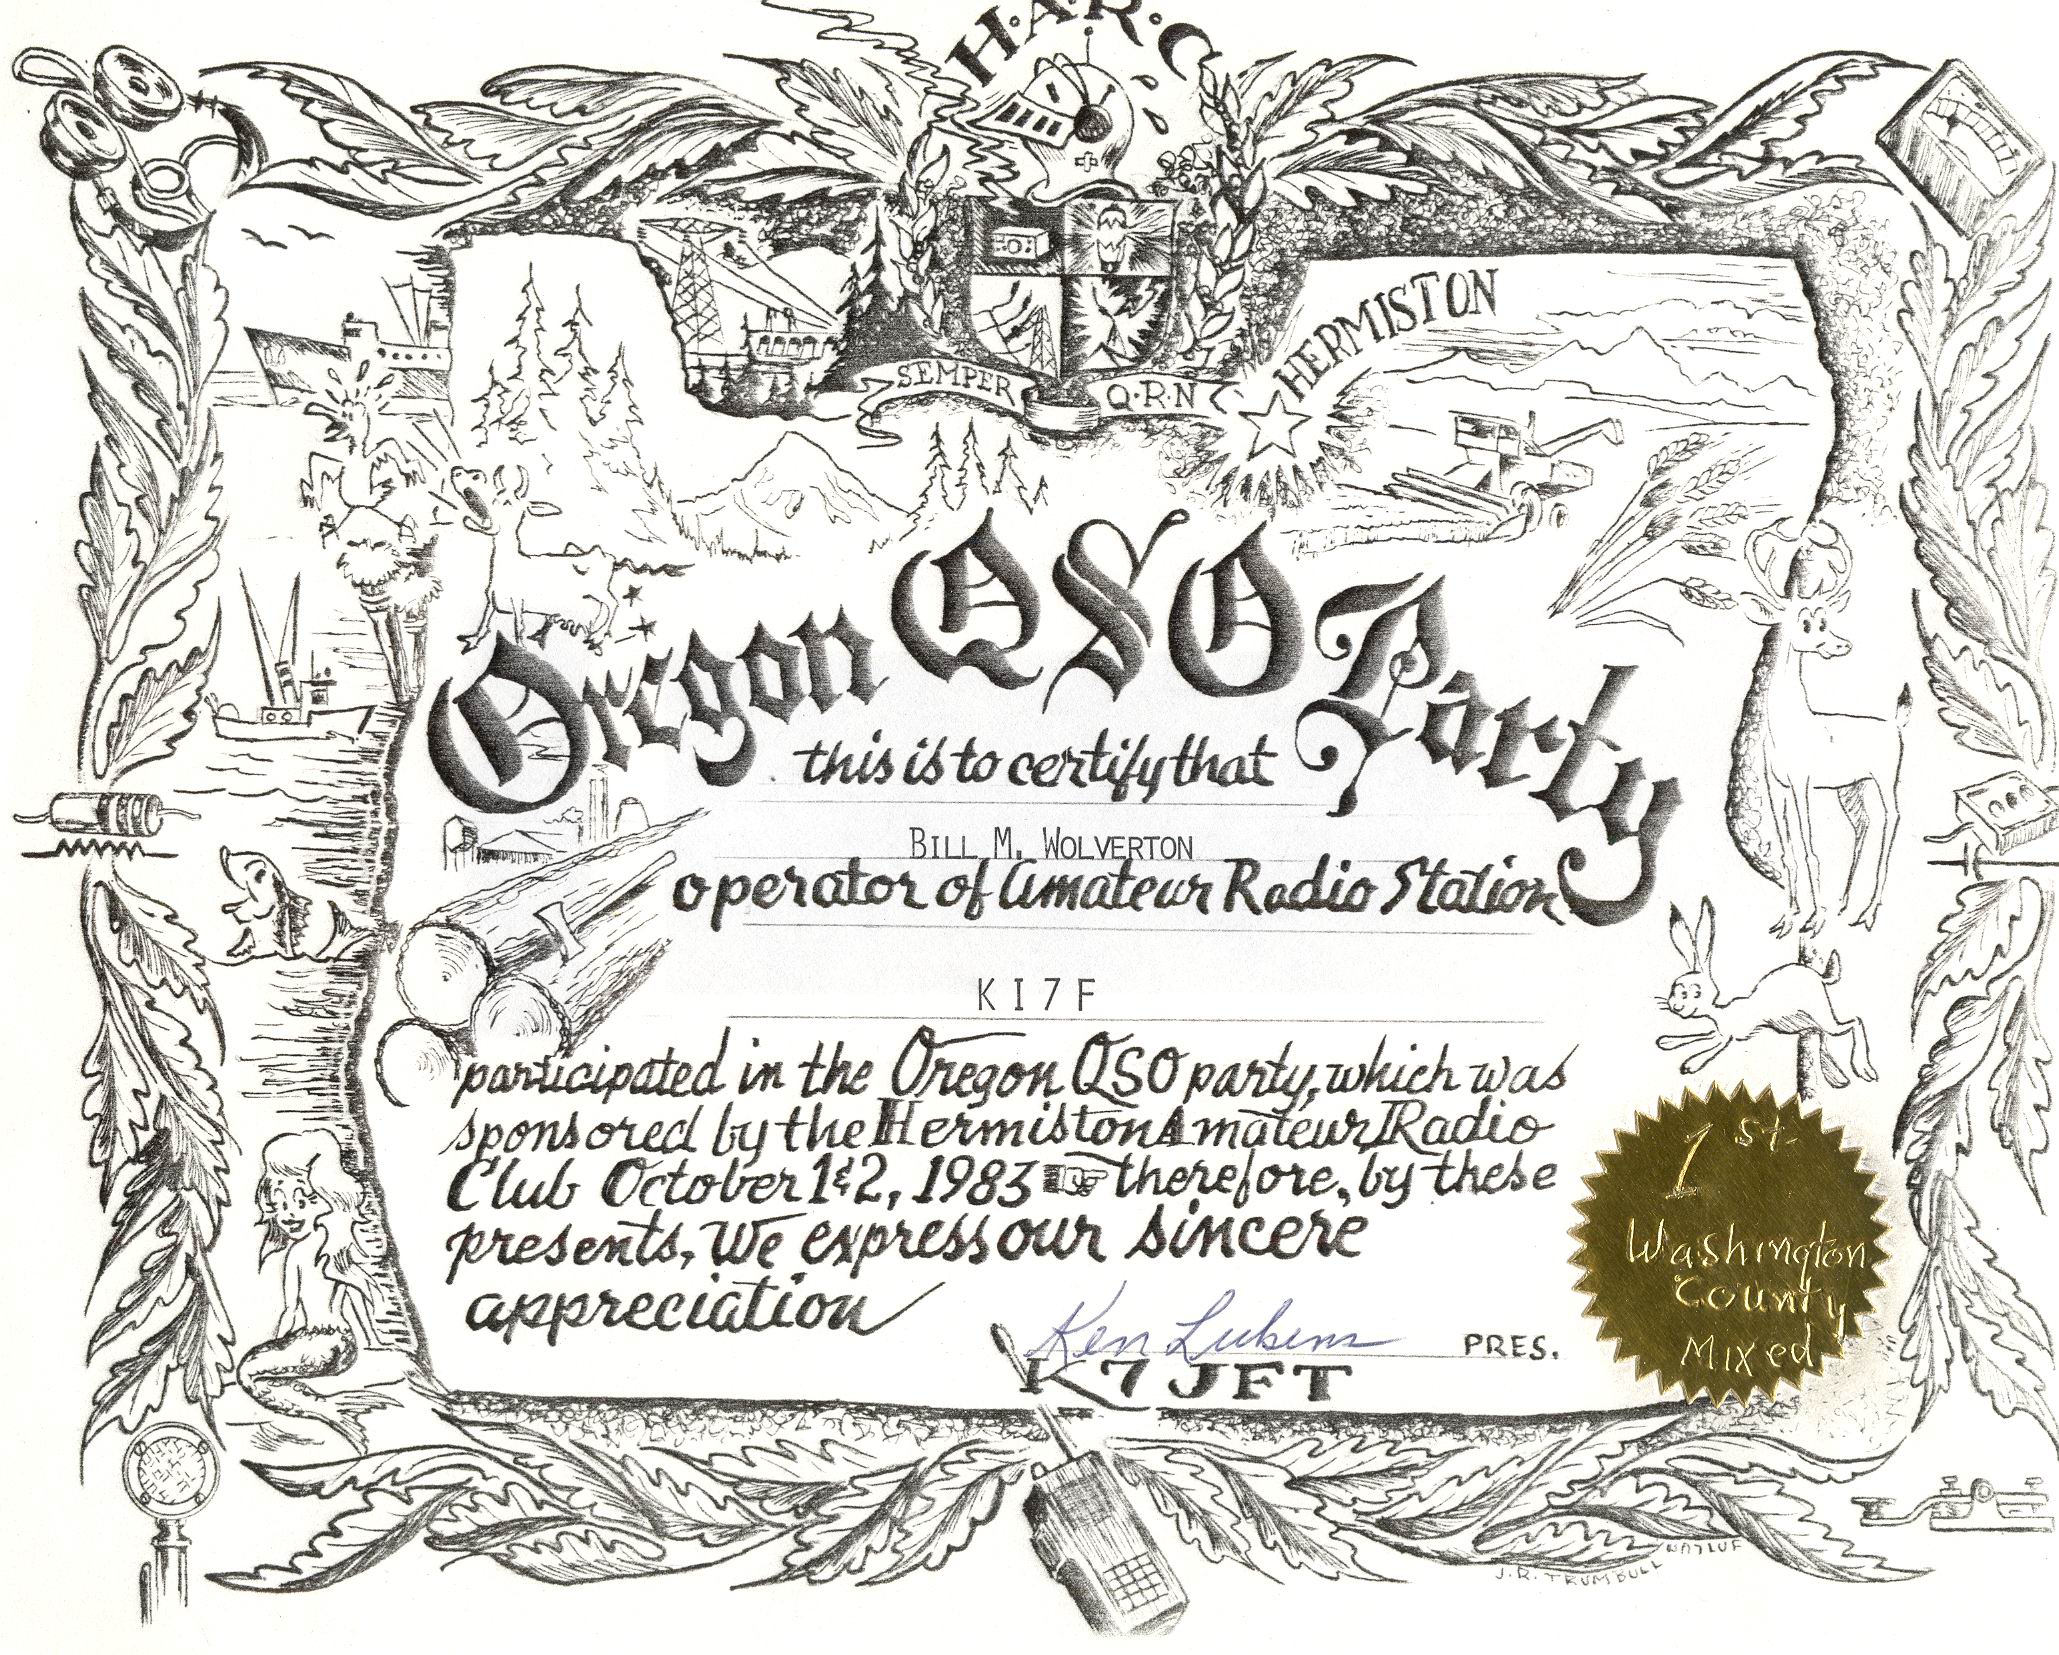 H·A·R·C
SEMPER Q·R·N
HERMISTON
Oregon QSO Party
this is to certify that
BILL M. WOLVERTON
operator of Amateur Radio Station
KI7F
participated in the Oregon QSO party, which was
sponsored by the Hermiston Amateur Radio
Club October 1&2, 1983 ☞ therefore, by these
presents, We express our sincere
appreciation
Ken Lukens PRES.
K7JFT
1st.
Washington
County
Mixed
J.R. TRUMBULL